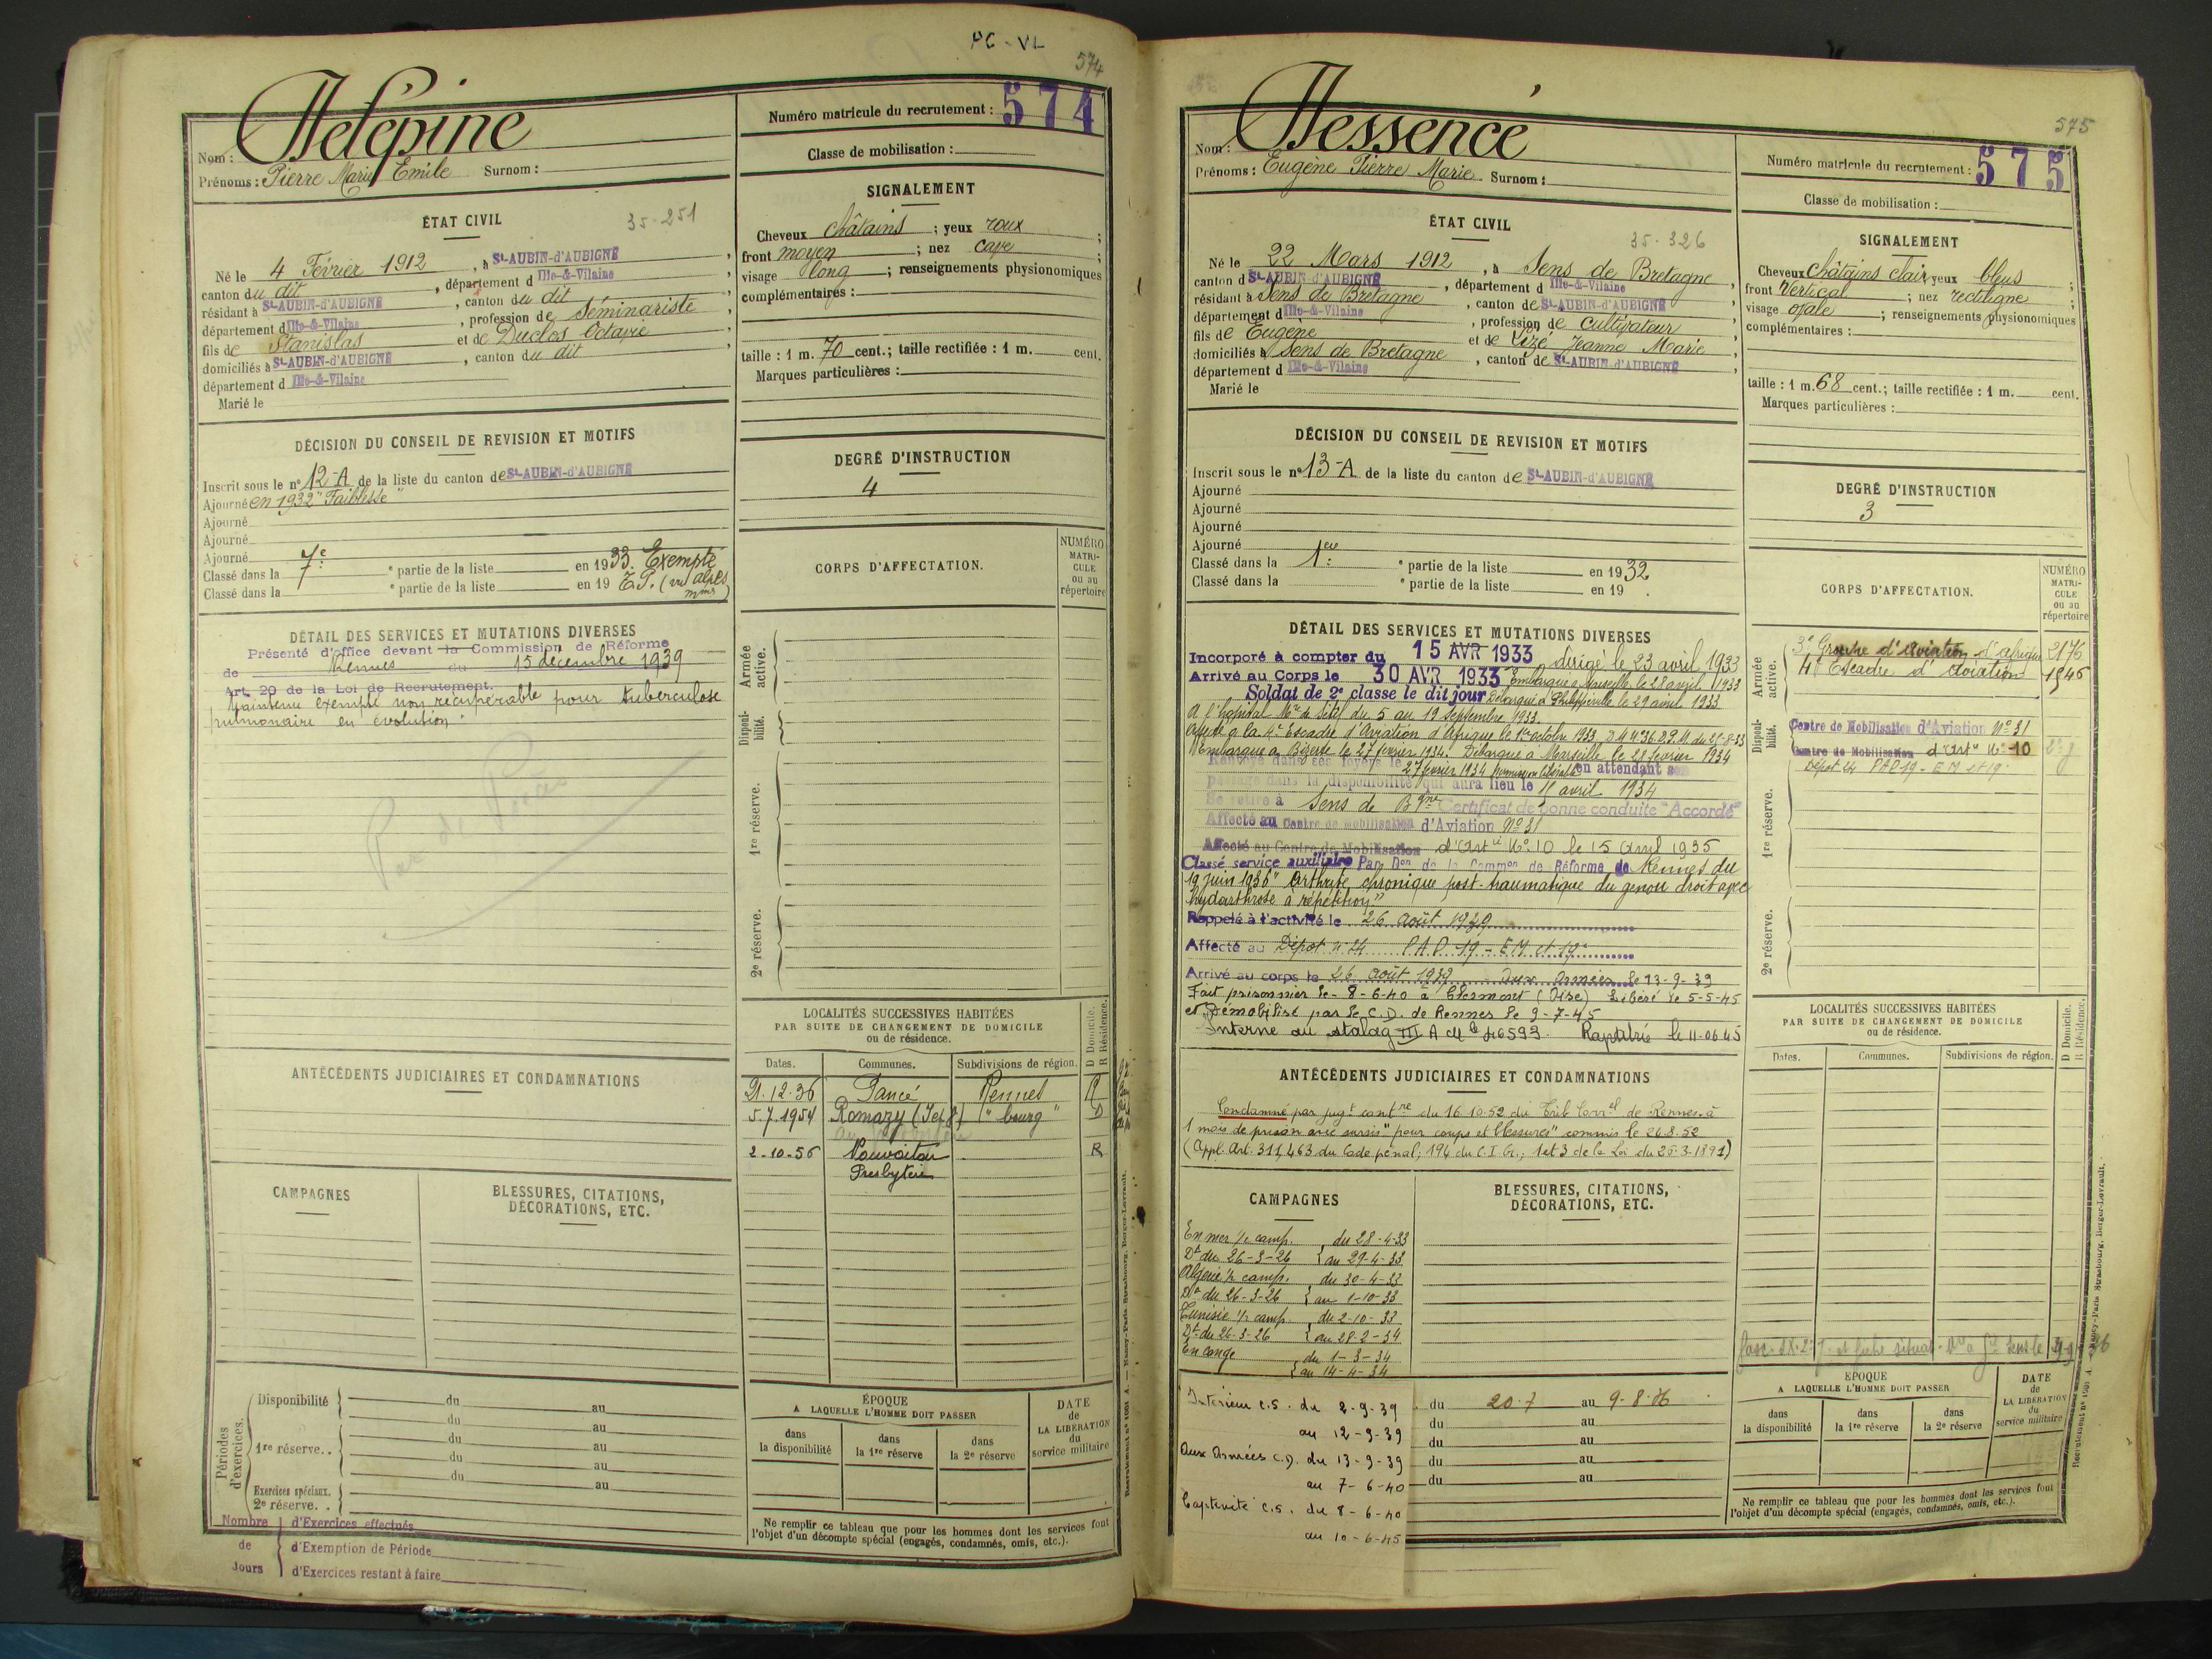 PC-VL
574
Numéro matricule du recrutement : 574
Nom :
Prénoms : Pierre Marie Emile Surnom :
Classe de mobilisation :
ÉTAT CIVIL
35-251
Né le 4 Février 1912, à St-AUBIN-d'AUBIGNÉ
canton du dit, département d Ille-&-Vilaine
résidant à St-AUBIN-d'AUBIGNÉ, canton du dit
département d Ille-&-Vilaine, profession de Séminariste
fils de Stanislas et de Duclos Octavie
domiciliés à St-AUBIN-d'AUBIGNÉ, canton du dit
département d Ille-&-Vilaine
Marié le
SIGNALEMENT
Cheveux châtains ; yeux roux ;
front moyen ; nez cave ;
visage long ; renseignements physionomiques
complémentaires :
taille : 1 m. 70 cent. ; taille rectifiée : 1 m. cent.
Marques particulières :
DÉCISION DU CONSEIL DE REVISION ET MOTIFS
Inscrit sous le n° 12-A de la liste du canton de St-AUBIN-d'AUBIGNÉ
Ajourné en 1932 "Faiblesse"
Ajourné
Ajourné
Ajourné
Classé dans la 7e • partie de la liste en 1933. Exempté
Classé dans la • partie de la liste en 19
DEGRÉ D'INSTRUCTION
4
DÉTAIL DES SERVICES ET MUTATIONS DIVERSES
Présenté d'office devant la Commission de Réforme
de Rennes du 15 décembre 1939
Art. 20 de la Loi de Recrutement.
Maintenu exempté non récupérable pour tuberculose
pulmonaire en évolution.
CORPS D'AFFECTATION.
NUMÉRO
MATRI-
CULE
ou au
répertoire
Armée
active.
Disponi-
bilité.
1re réserve.
2e réserve.
ANTÉCÉDENTS JUDICIAIRES ET CONDAMNATIONS
LOCALITÉS SUCCESSIVES HABITÉES
PAR SUITE DE CHANGEMENT DE DOMICILE
ou de résidence.
D Domicile.
R Résidence.
Dates. Communes. Subdivisions de région.
21.12.36 Pancé Rennes R
5.7.1954 Romazy "bourg" D
2-10-56 Nouvoitou R
Presbytère
CAMPAGNES
BLESSURES, CITATIONS,
DÉCORATIONS, ETC.
Périodes
d'exercices.
Disponibilité du au
du au
1re réserve.. du au
du au
Exercices spéciaux. du au
2e réserve. .
Nombre d'Exercices effectués
de d'Exemption de Période
Jours d'Exercices restant à faire
ÉPOQUE
A LAQUELLE L'HOMME DOIT PASSER
dans
la disponibilité
dans
la 1re réserve
dans
la 2e réserve
DATE
de
LA LIBÉRATION
du
service militaire
Ne remplir ce tableau que pour les hommes dont les services font
l'objet d'un décompte spécial (engagés, condamnés, omis, etc.).
575
Numéro matricule du recrutement : 575
Nom : Hessence
Prénoms : Eugène Pierre Marie Surnom :
Classe de mobilisation :
ÉTAT CIVIL
35-326
Né le 22 Mars 1912, à Sens de Bretagne
canton d St-AUBIN-d'AUBIGNÉ, département d Ille-&-Vilaine
résidant à Sens de Bretagne, canton de St-AUBIN-d'AUBIGNÉ
département d Ille-&-Vilaine, profession de Cultivateur
fils de Eugène et de Lizé Jeanne Marie
domiciliés à Sens de Bretagne, canton de St-AUBIN-d'AUBIGNÉ
département d Ille-&-Vilaine
Marié le
SIGNALEMENT
Cheveux châtains clair yeux bleus ;
front Vertical ; nez rectiligne ;
visage ovale ; renseignements physionomiques
complémentaires :
taille : 1 m. 68 cent. ; taille rectifiée : 1 m. cent.
Marques particulières :
DÉCISION DU CONSEIL DE REVISION ET MOTIFS
Inscrit sous le n° 13-A de la liste du canton de St-AUBIN-d'AUBIGNÉ
Ajourné
Ajourné
Ajourné
Ajourné
Classé dans la 1ere • partie de la liste en 1932
Classé dans la • partie de la liste en 19 .
DEGRÉ D'INSTRUCTION
3
DÉTAIL DES SERVICES ET MUTATIONS DIVERSES
Incorporé à compter du 15 AVR 1933 dirigé le 23 avril 1933
Arrivé au Corps le 30 AVR 1933 Embarqué à Marseille le 28 avril 1933
Soldat de 2e classe le dit jour Débarqué à Philippeville le 29 avril 1933
A l'hôpital Mre de Sétif du 5 au 19 Septembre 1933.
Affecté à la 4e Escadre d'Aviation d'Afrique le 1er octobre 1933
Embarqué à Bizerte le 27 février 1934. Débarqué à Marseille le 28 février 1934
Renvoyé dans ses foyers le 27 février 1934 en attendant son
passage dans la disponibilité qui aura lieu le 15 avril 1934
Se retire à Sens de Bgne Certificat de bonne conduite "Accordé"
Affecté au Centre de Mobilisation d'Aviation N° 31
Affecté au Centre de Mobilisation d'Artie N° 10 le 15 avril 1935
Classé service auxiliaire Par Don de la Common de Réforme de Rennes du
19 juin 1936 "Arthrite chronique post-traumatique du genou droit avec
hydarthrose à répétition"
Rappelé à l'activité le 26 août 1939
Affecté au Dépot n° 24 PAD 19 - EM et 19e
Arrivé au corps le 26 août 1939 Aux Armées le 13-9-39
Fait prisonnier le 8-6-40 à Clermont (Oise) Libéré le 5-5-45
et Démobilisé par le C.D. de Rennes le 9-7-45
Interné au stalag III A Mle 46593. Rapatrié le 11-06 45
CORPS D'AFFECTATION.
NUMÉRO
MATRI-
CULE
ou au
répertoire
Armée
active.
3e Groupe d'aviation d'afrique 2176
4e Escadre d'Aviation 1546
Disponi-
bilité.
Centre de Mobilisation d'Aviation N° 31
Centre de Mobilisation d'Artie N° 10
Dépot 24 PAD 19 - EM et 19e
1re réserve.
2e réserve.
ANTÉCÉDENTS JUDICIAIRES ET CONDAMNATIONS
Condamné par jugt contre du 16.10.52 du Trib Correl de Rennes à
1 mois de prison avec sursis "pour coups et blessures" commis le 24.8.52
(Appl. Art. 311, 463 du Code pénal ; 194 du C.I.Cr. ; 1 et 3 de la Loi du 26-3-1891)
LOCALITÉS SUCCESSIVES HABITÉES
PAR SUITE DE CHANGEMENT DE DOMICILE
ou de résidence.
D Domicile.
R Résidence.
Dates. Communes. Subdivisions de région.
CAMPAGNES
En mer 1/2 camp. du 28-4-33
Dt du 26-3-26 au 29-4-33
Algérie 1/2 camp. du 30-4-33
Dt du 26-3-26 au 1-10-33
Tunisie 1/2 camp. du 2-10-33
Dt du 26-3-26 au 28-2-34
En congé du 1-3-34
au 14-4-34
Intérieur C.S. du 2-9-39
au 12-9-39
Aux Armées C.D. du 13-9-39
au 7-6-40
Captivité C.S. du 8-6-40
au 10-6-45
BLESSURES, CITATIONS,
DÉCORATIONS, ETC.
du 20-7 au 9-8-36
du au
du au
du au
du au
ÉPOQUE
A LAQUELLE L'HOMME DOIT PASSER
dans
la disponibilité
dans
la 1re réserve
dans
la 2e réserve
DATE
de
LA LIBÉRATION
du
service militaire
Ne remplir ce tableau que pour les hommes dont les services font
l'objet d'un décompte spécial (engagés, condamnés, omis, etc.).